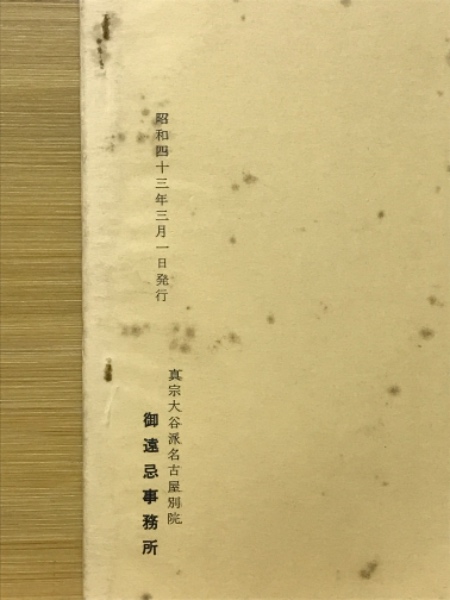 昭和四十三年三月一日発行
真宗大谷派名古屋別院
御遠忌事務所